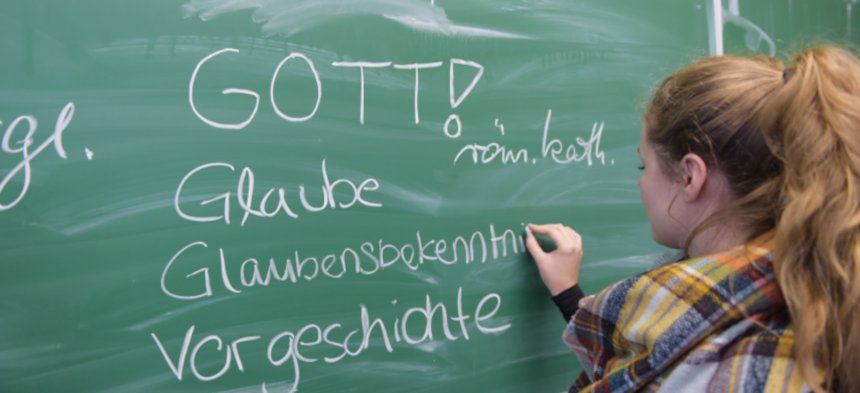 GOTT!
röm.kath.
Glaube
Glaubensbekenntni
Vorgeschichte